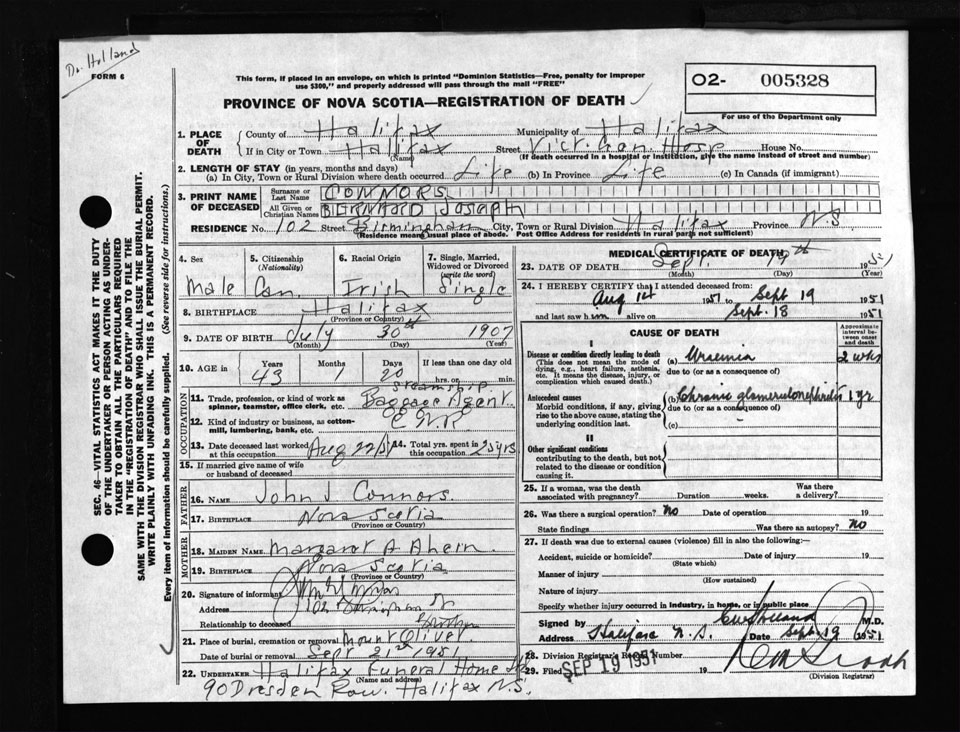 Dr. Holland
FORM 6
This form, if placed in an envelope, on which is printed "Dominion Statistics—Free, penalty for improper
use $300," and properly addressed will pass through the mail "FREE"
PROVINCE OF NOVA SCOTIA—REGISTRATION OF DEATH
O2- 005328
For use of the Department only
1. PLACE OF DEATH
County of Halifax Municipality of Halifax
If in City or Town Halifax Street Vict. Gen. Hosp House No.
(Name) (If death occurred in a hospital or institution, give the name instead of street and number)
2. LENGTH OF STAY (in years, months and days)
(a) In City, Town or Rural Division where death occurred Life (b) In Province Life (c) In Canada (if immigrant)
3. PRINT NAME OF DECEASED
Surname or Last Name CONNORS
All Given or Christian Names BERNARD Joseph
RESIDENCE No. 102 Street Birmingham City, Town or Rural Division Halifax Province N S
(Residence means usual place of abode. Post Office Address for residents in rural parts not sufficient)
SEC. 46—VITAL STATISTICS ACT MAKES IT THE DUTY
OF THE UNDERTAKER OR PERSON ACTING AS UNDER-
TAKER TO OBTAIN ALL THE PARTICULARS REQUIRED
IN THE "REGISTRATION OF DEATH" AND TO FILE THE
SAME WITH THE DIVISION REGISTRAR WHO SHALL ISSUE THE BURIAL PERMIT.
WRITE PLAINLY WITH UNFADING INK. THIS IS A PERMANENT RECORD.
Every item of information should be carefully supplied. (See reverse side for instructions.)
4. Sex 5. Citizenship (Nationality) 6. Racial Origin 7. Single, Married, Widowed or Divorced (write the word)
Male Can. Irish Single
8. BIRTHPLACE Halifax
(Province or Country)
9. DATE OF BIRTH July 30th 1907
(Month) (Day) (Year)
10. AGE in Years Months Days If less than one day old
43 1 20 hrs. or min.
OCCUPATION
11. Trade, profession, or kind of work as spinner, teamster, office clerk, etc. Steamship Baggage Agent
12. Kind of industry or business, as cotton-mill, lumbering, bank, etc. C N R
13. Date deceased last worked at this occupation Aug 22/51 14. Total yrs. spent in this occupation 25 yrs
15. If married give name of wife or husband of deceased
FATHER
16. NAME John J Connors.
17. BIRTHPLACE Nova Scotia
(Province or Country)
MOTHER
18. MAIDEN NAME Margaret A Ahern.
19. BIRTHPLACE Nova Scotia
(Province or Country)
20. Signature of informant
Address 102 Birmingham St
Relationship to deceased Brother
21. Place of burial, cremation or removal Mount Olivet
Date of burial or removal Sept 21st 1951
22. UNDERTAKER Halifax Funeral Home Ltd
(Name and address)
90 Dresden Row. Halifax N.S.
MEDICAL CERTIFICATE OF DEATH
23. DATE OF DEATH Sept. 19th 1951
(Month) (Day) (Year)
24. I HEREBY CERTIFY that I attended deceased from:
Aug 1st 1951 to Sept 19 1951
and last saw him alive on Sept. 18 1951
CAUSE OF DEATH
Approximate interval between onset and death
I
Disease or condition directly leading to death (a) Uraemia 2 wks
(This does not mean the mode of dying, e.g., heart failure, asthenia, etc. It means the disease, injury, or complication which caused death.)
due to (or as a consequence of)
Antecedent causes (b) Chronic glomerulonephritis 1 yr
Morbid conditions, if any, giving rise to the above cause, stating the underlying condition last.
due to (or as a consequence of)
(c)
II
Other significant conditions
contributing to the death, but not related to the disease or condition causing it.
25. If a woman, was the death associated with pregnancy? Duration weeks. Was there a delivery?
26. Was there a surgical operation? No Date of operation 19
State findings Was there an autopsy? No
27. If death was due to external causes (violence) fill in also the following:—
Accident, suicide or homicide? Date of injury 19
(State which)
Manner of injury
(How sustained)
Nature of injury
Specify whether injury occurred in industry, in home, or in public place
Signed by CW Holland M.D.
Address Halifax N. S. Date Sept 19 1951
28. Division Registrar's Record Number
29. Filed SEP 19 1951 19
(Division Registrar)